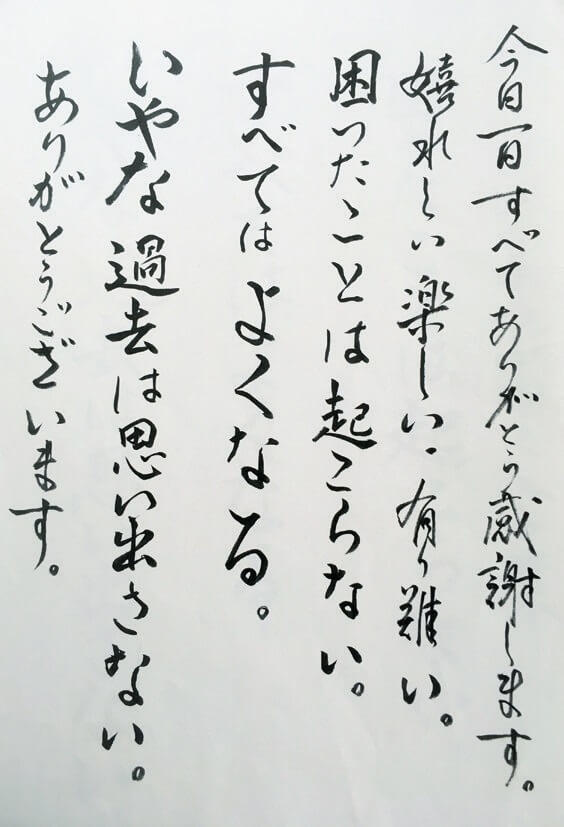 今日一日すべてありがとう感謝します。
嬉れしい楽しい、有り難い。
困ったことは起こらない。
すべてはよくなる。
いやな過去は思い出さない。
ありがとうございます。